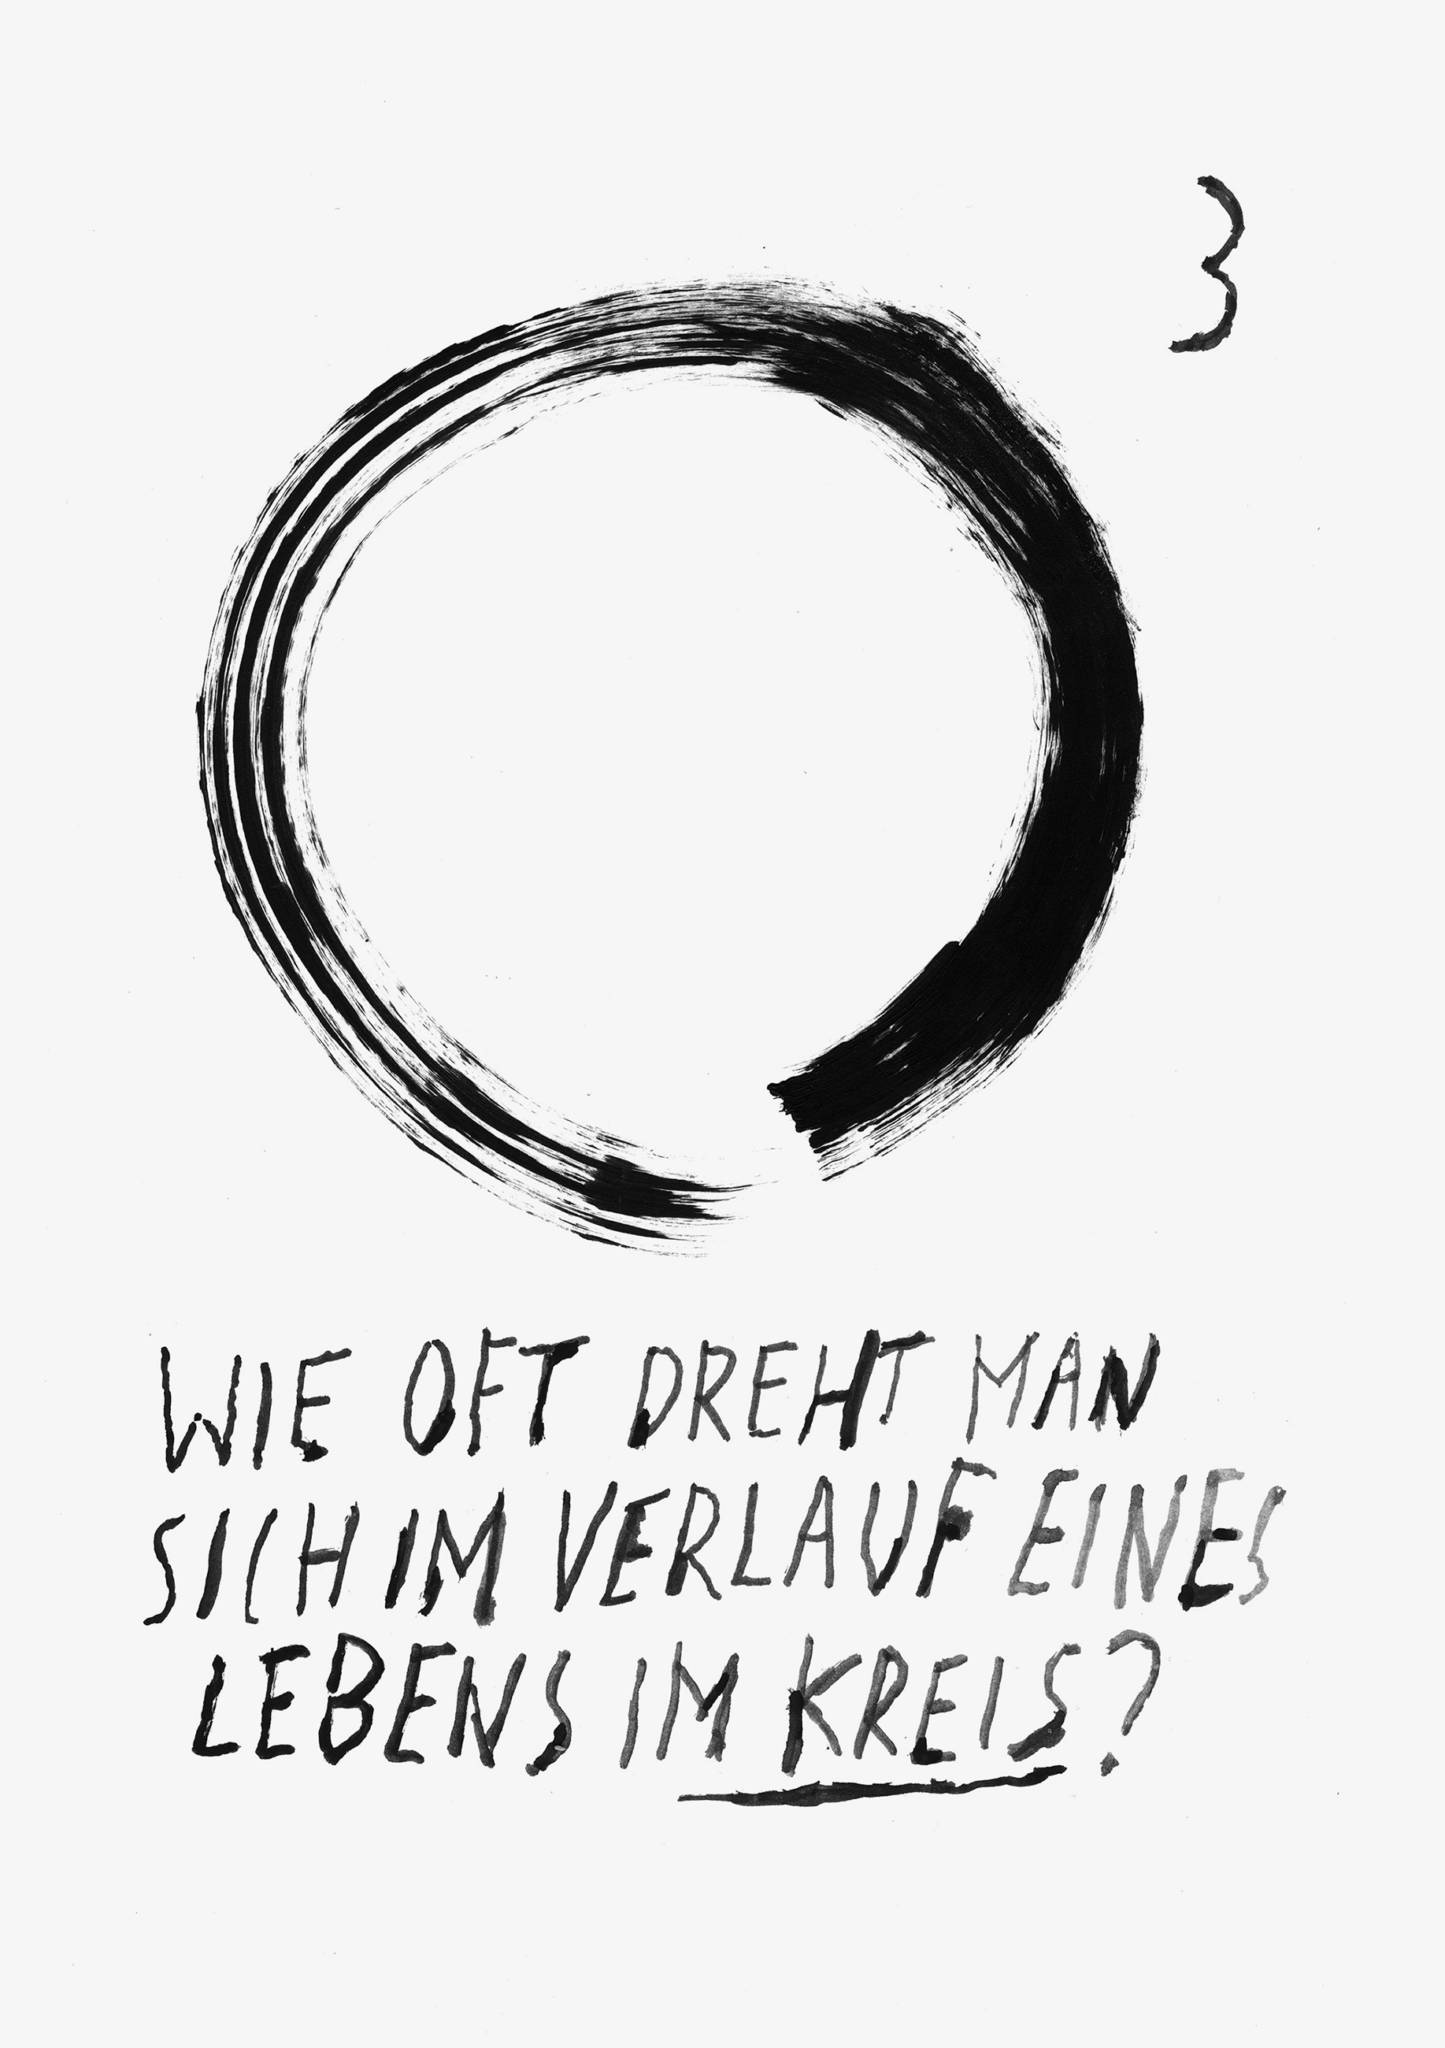 3
WIE OFT DREHT MAN
SICH IM VERLAUF EINES
LEBENS IM KREIS?